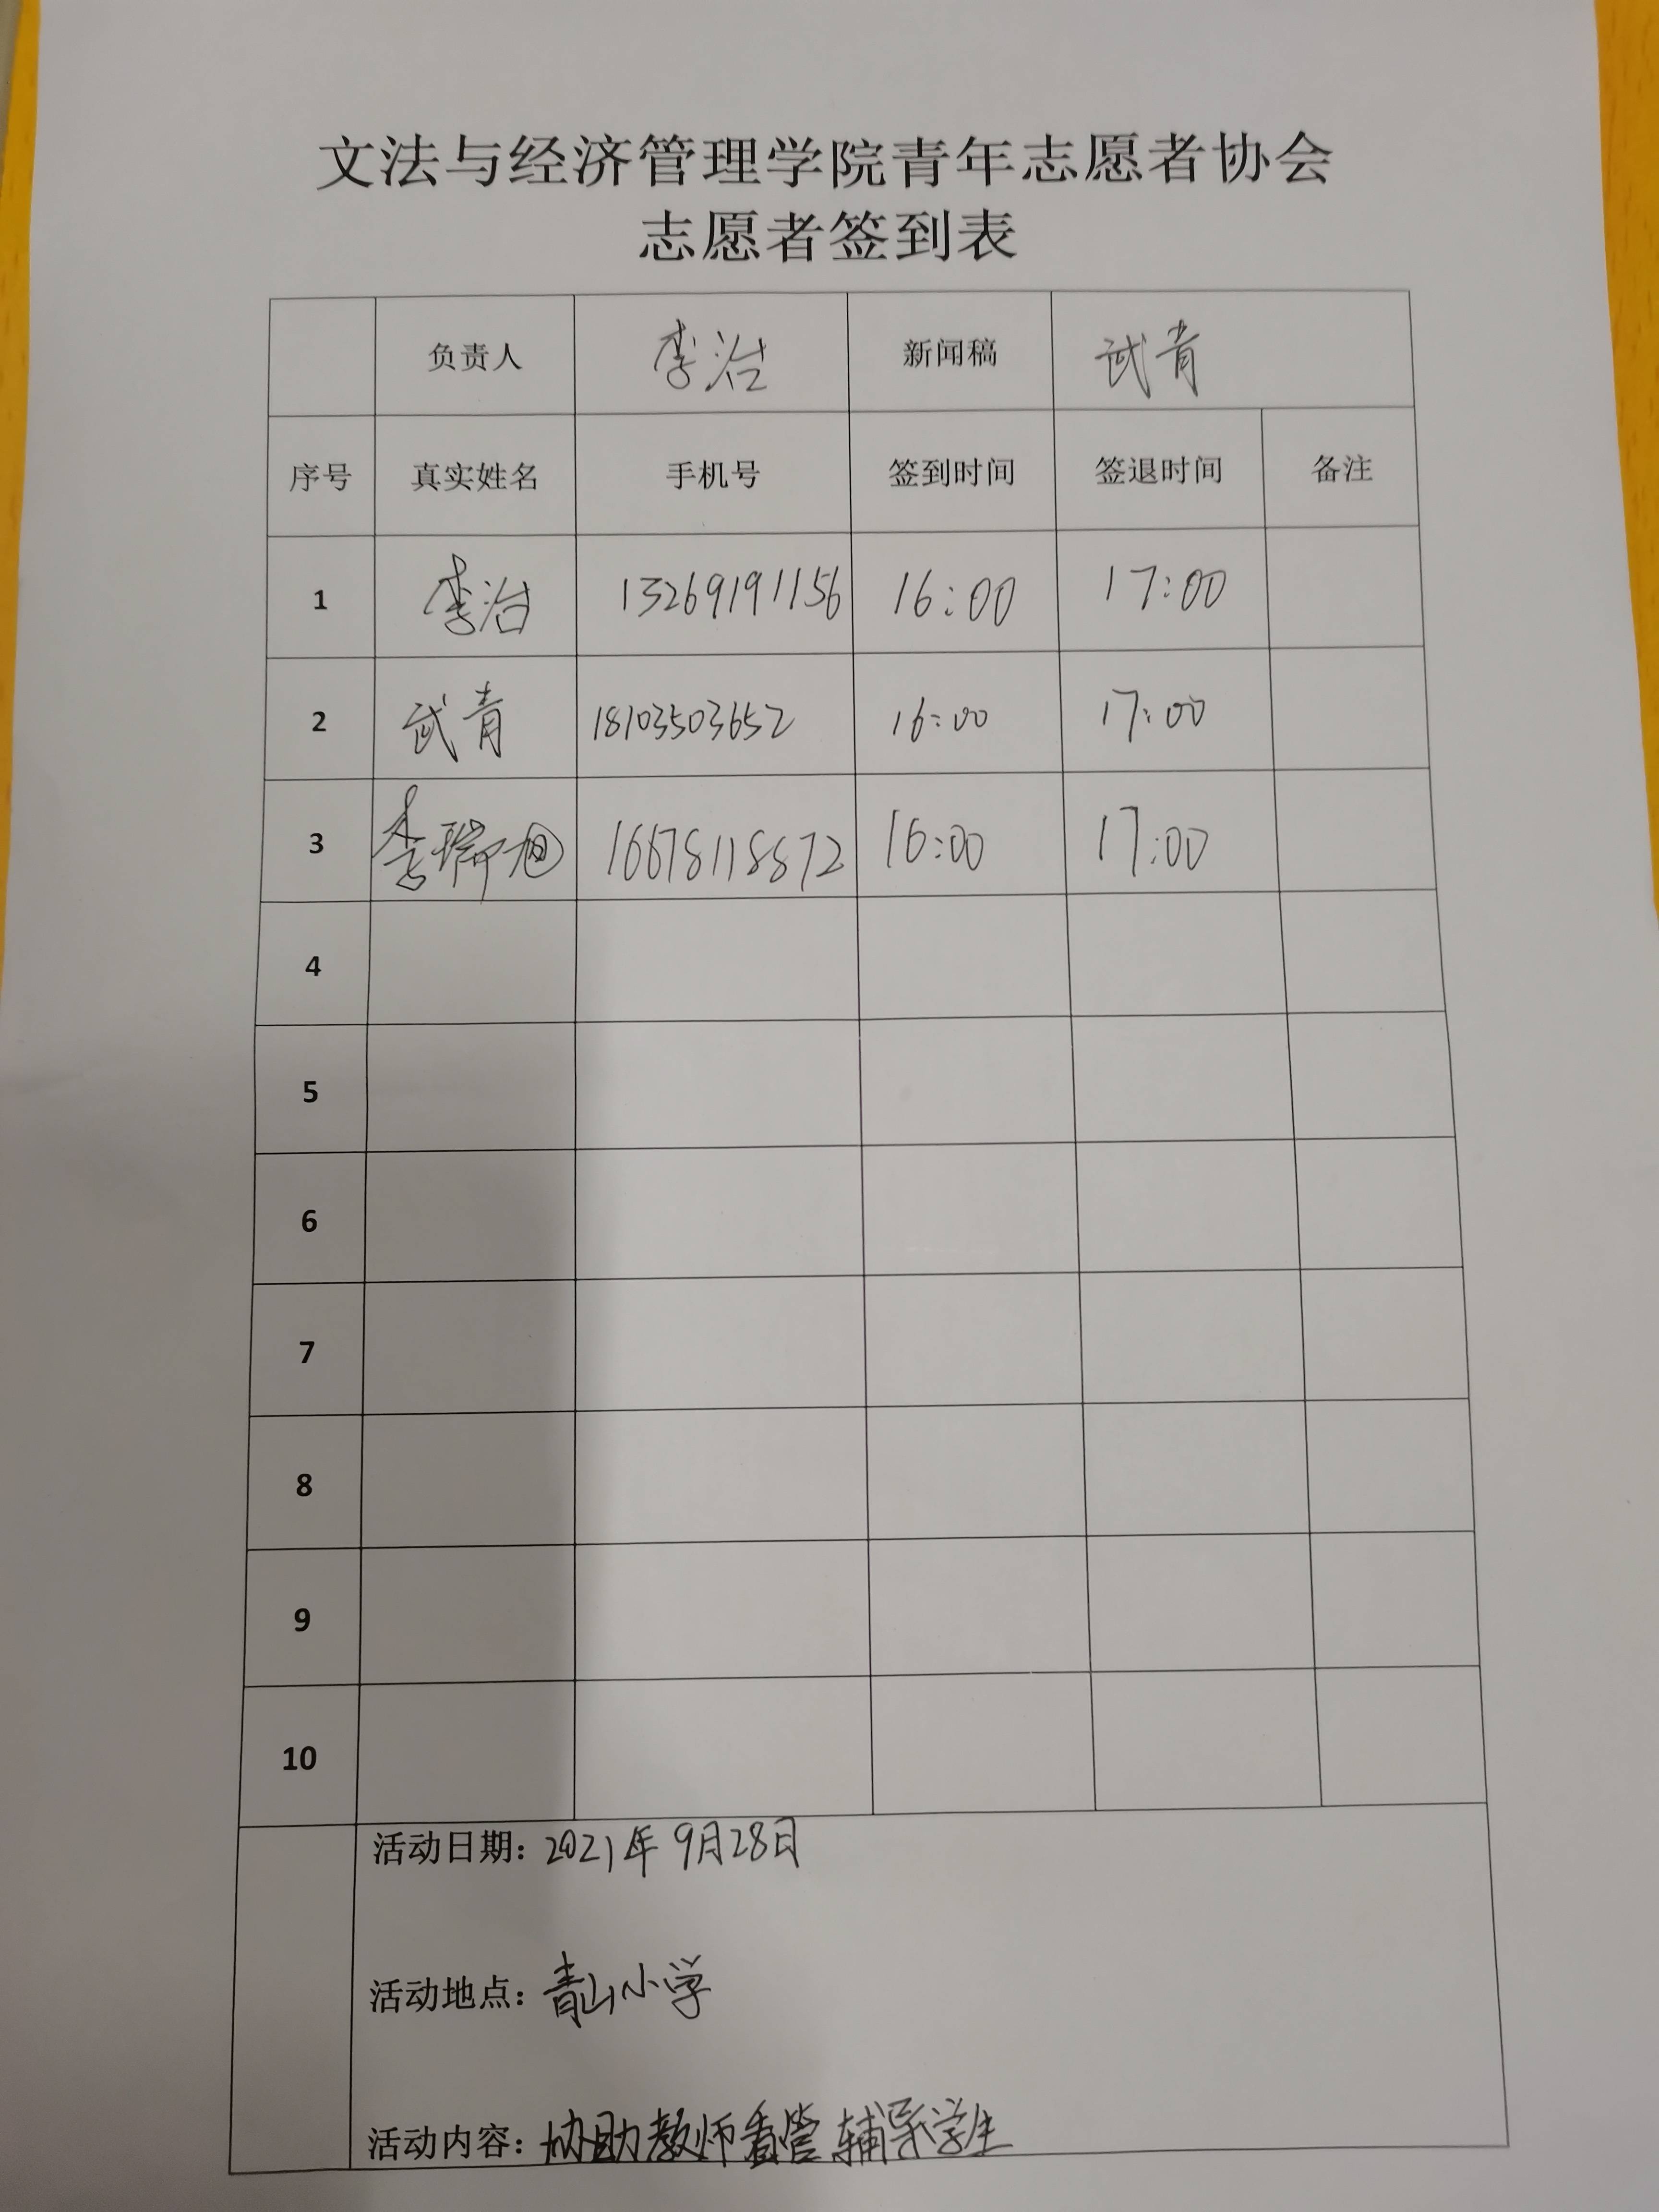 文法与经济管理学院青年志愿者协会
志愿者签到表
负责人 李治 新闻稿 武青
序号 真实姓名 手机号 签到时间 签退时间 备注
1 李治 13269191156 16:00 17:00
2 武青 18103503652 16:00 17:00
3 李瑞旭 16678118872 16:00 17:00
4
5
6
7
8
9
10
活动日期：2021年9月28日
活动地点：青山小学
活动内容：协助教师看管辅导学生